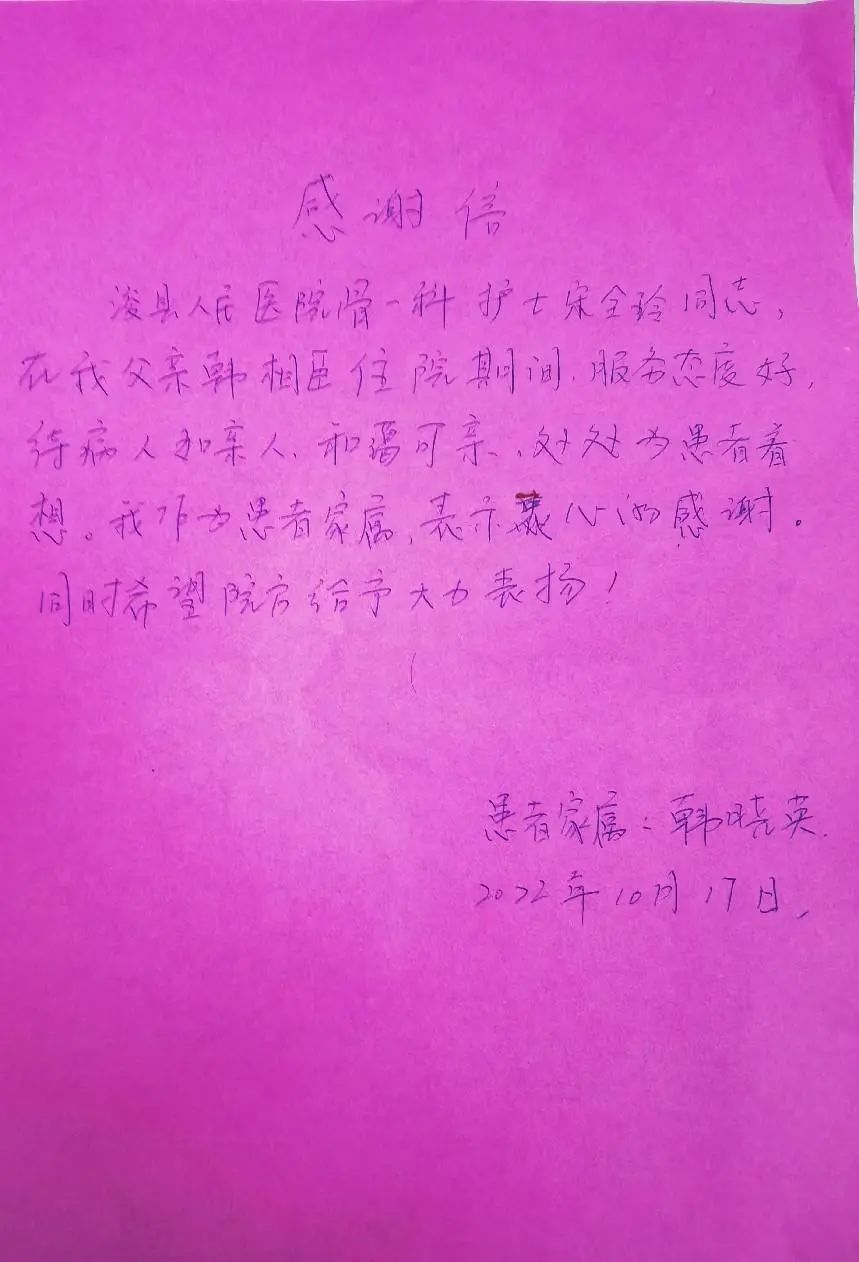 感谢信
浚县人民医院骨一科护士宋全玲同志，
在我父亲韩相臣住院期间、服务态度好，
待病人如亲人、和蔼可亲、处处为患者着
想。我作为患者家属，表示衷心的感谢。
同时希望院方给予大力表扬！
患者家属：韩晓英.
2022年10月17日，